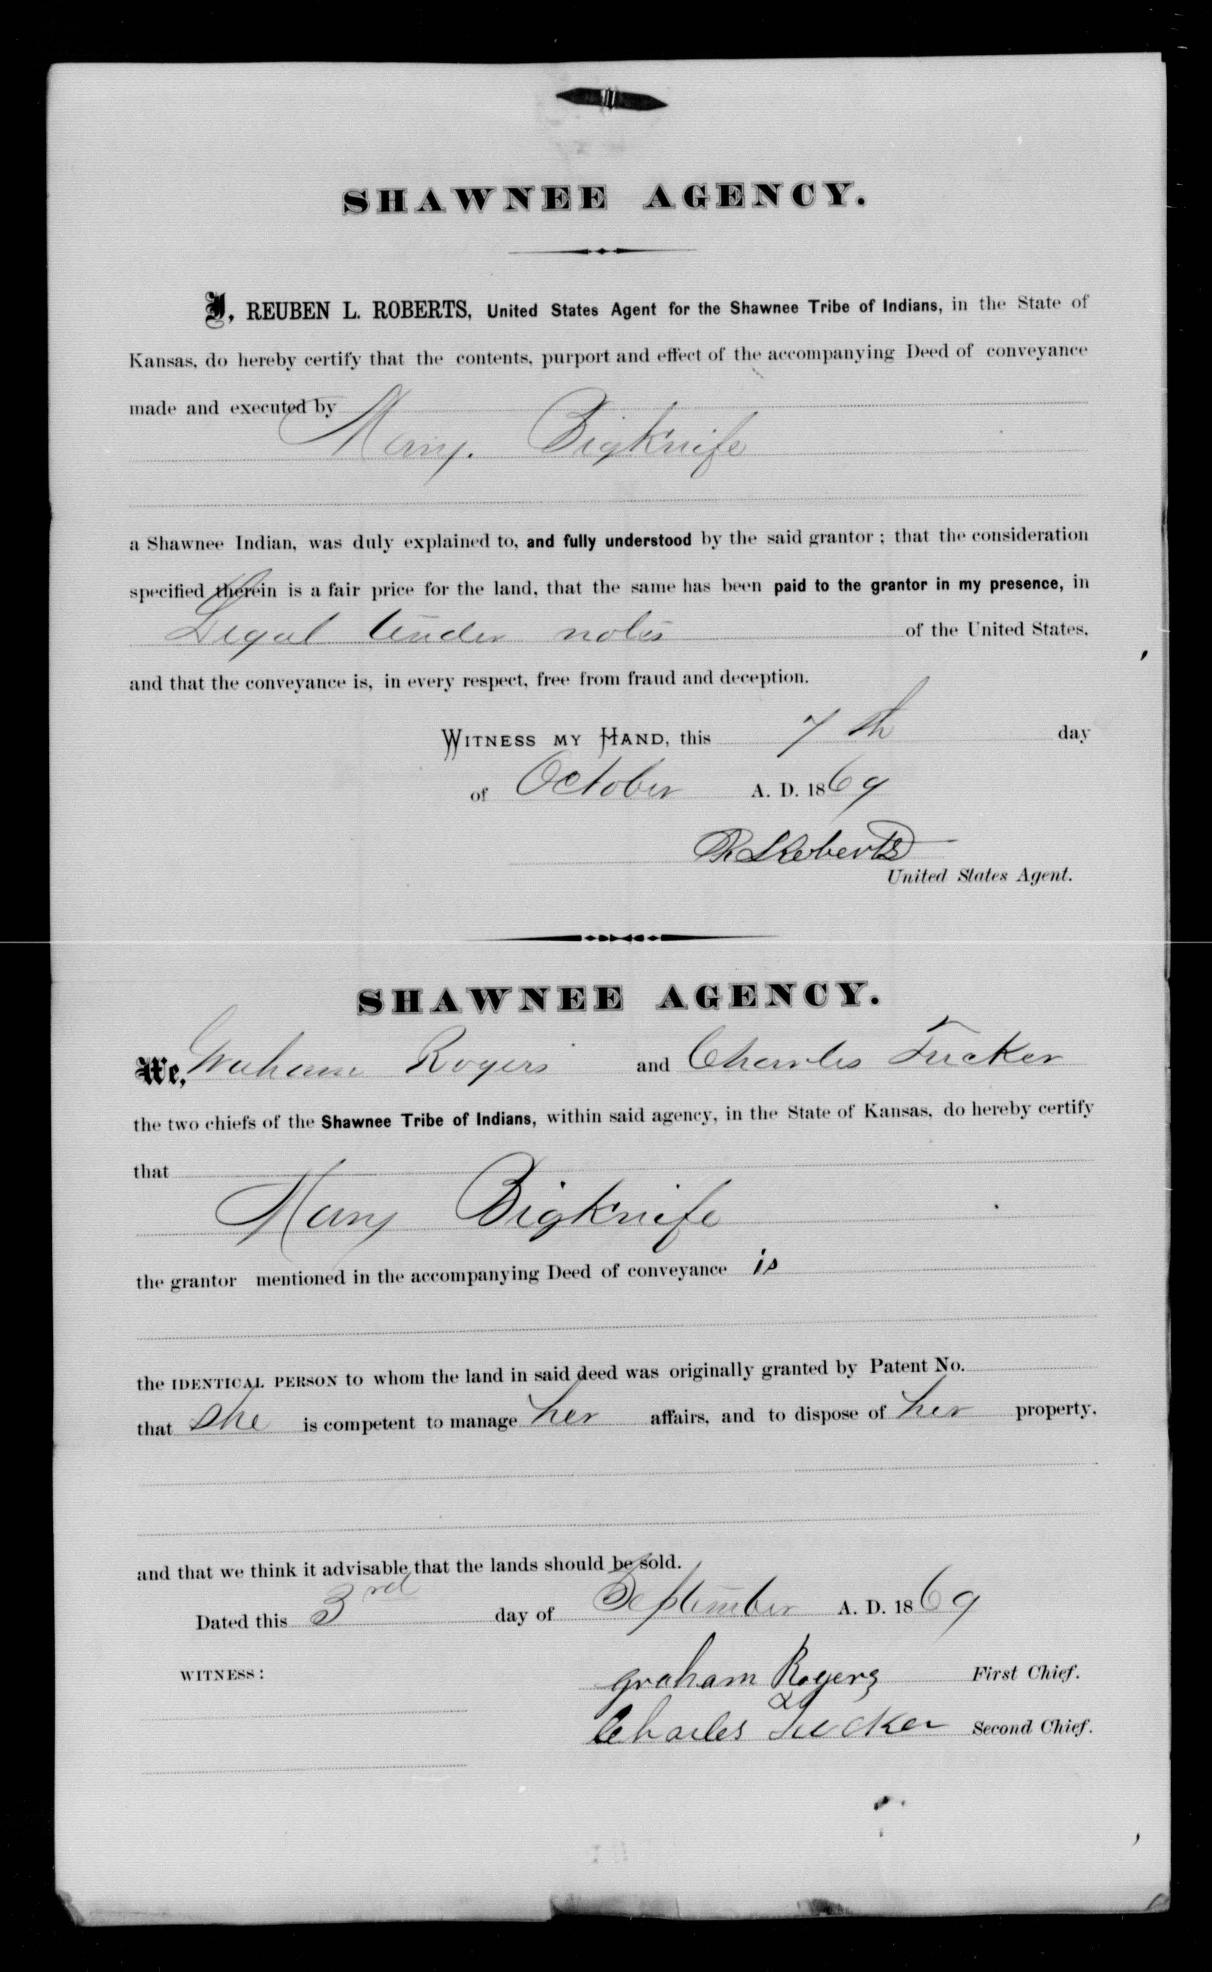 SHAWNEE AGENCY.
I, REUBEN L. ROBERTS, United States Agent for the Shawnee Tribe of Indians, in the State of
Kansas, do hereby certify that the contents, purport and effect of the accompanying Deed of conveyance
made and executed by
Mary. Bigknife
a Shawnee Indian, was duly explained to, and fully understood by the said grantor; that the consideration
specified therein is a fair price for the land, that the same has been paid to the grantor in my presence, in
Legal tender notes of the United States,
and that the conveyance is, in every respect, free from fraud and deception.
WITNESS MY HAND, this 7th day
of October A. D. 1869
R L Roberts
United States Agent.
SHAWNEE AGENCY.
We, Graham Rogers and Charles Tucker
the two chiefs of the Shawnee Tribe of Indians, within said agency, in the State of Kansas, do hereby certify
that
Mary Bigknife
the grantor mentioned in the accompanying Deed of conveyance is
the IDENTICAL PERSON to whom the land in said deed was originally granted by Patent No.
that she is competent to manage her affairs, and to dispose of her property,
and that we think it advisable that the lands should be sold.
Dated this 3rd day of September A. D. 1869
WITNESS: graham Rogers First Chief.
Charles Tucker Second Chief.